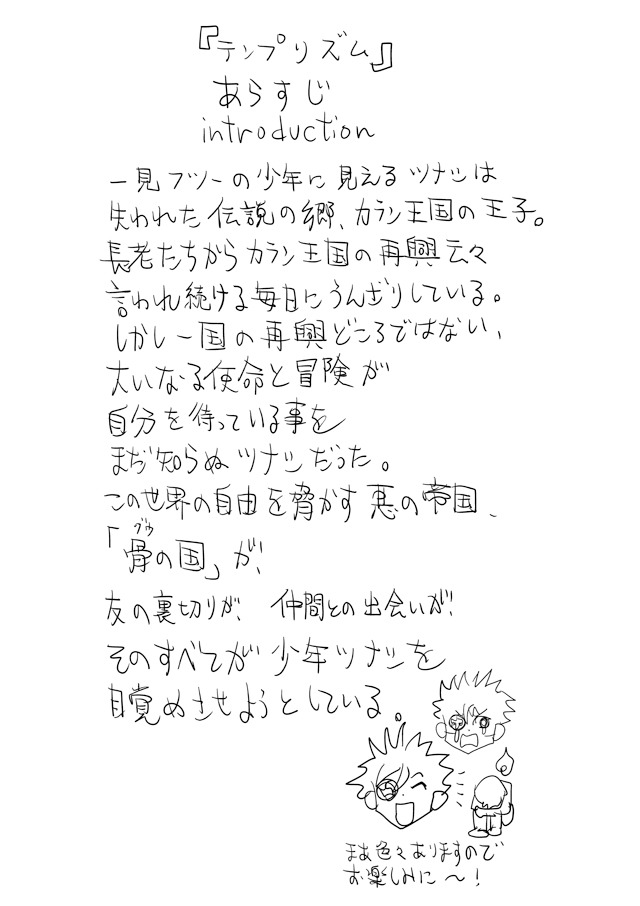 『テンプリズム』
あらすじ
introduction
一見フツーの少年に見えるツナシは
失われた伝説の郷、カラン王国の王子。
長老たちからカラン王国の再興云々
言われ続ける毎日にうんざりしている。
しかし一国の再興どころではない、
大いなる使命と冒険が
自分を待っている事を
まだ知らぬツナシだった。
この世界の自由を脅かす悪の帝国、
「骨の国」が、
グウ
友の裏切りが、仲間との出会いが!
そのすべてが少年ツナシを
目覚めさせようとしている。
まあ色々ありますので
お楽しみに〜!